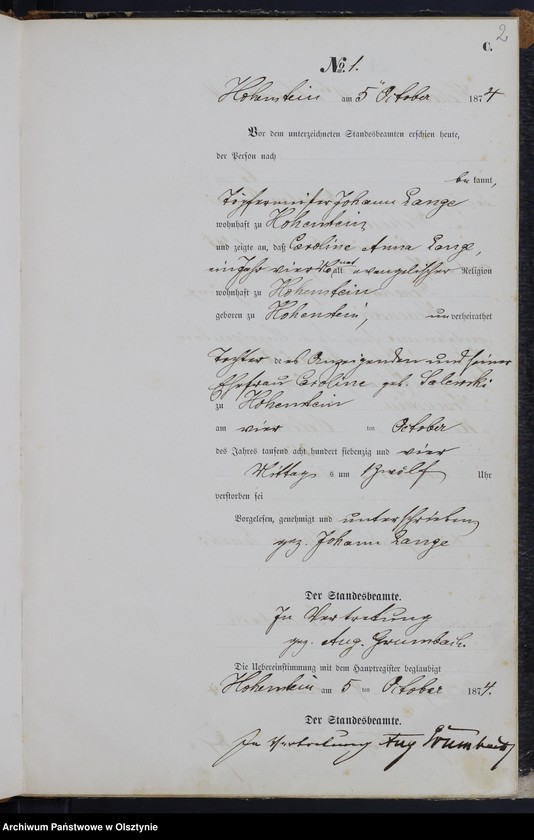 2
C.
No. 1.
Hohenstein am 5 October 1874
Vor dem unterzeichneten Standesbeamten erschien heute,
der Person nach
be kannt,
Töpfermeister Johann Lange
wohnhaft zu Hohenstein
und zeigte an, daß Caroline Anna Lange,
ein Jahr vier Monat alt evangelischer Religion
wohnhaft zu Hohenstein
geboren zu Hohenstein, un verheirathet
Tochter des Anzeigenden und seiner
Ehefrau Caroline geb. Salewski
zu Hohenstein
am vier ten October
des Jahres tausend acht hundert siebenzig und vier
Mittag s um Zwölf Uhr
verstorben sei
Vorgelesen, genehmigt und unterschrieben
gez. Johann Lange
Der Standesbeamte.
In Vertretung
gez. Aug. Grumbach.
Die Uebereinstimmung mit dem Hauptregister beglaubigt
Hohenstein am 5 ten October 1874.
Der Standesbeamte.
In Vertretung Aug Grumbach
Archiwum Państwowe w Olsztynie